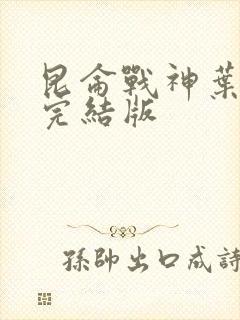 昆侖戰神葉
完結版
孫帥出口成詩